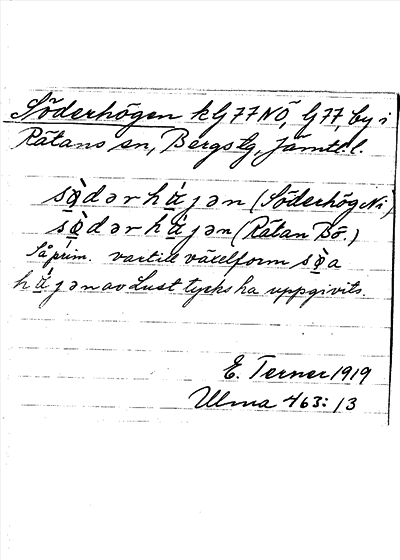 Söderhögen k G77NÖ, G77, by i
Rätans sn, Bergs tg, Jämtl. l.
sø̀dərhá̱jən (Söderhög Ni
sø̀dərhá̱jən (Rätan Bö.)
Så prim. vartill växelform sø̀a
há̱jən av Lust tycks ha uppgivits.
E. Terner 1919
Ulma 463:13